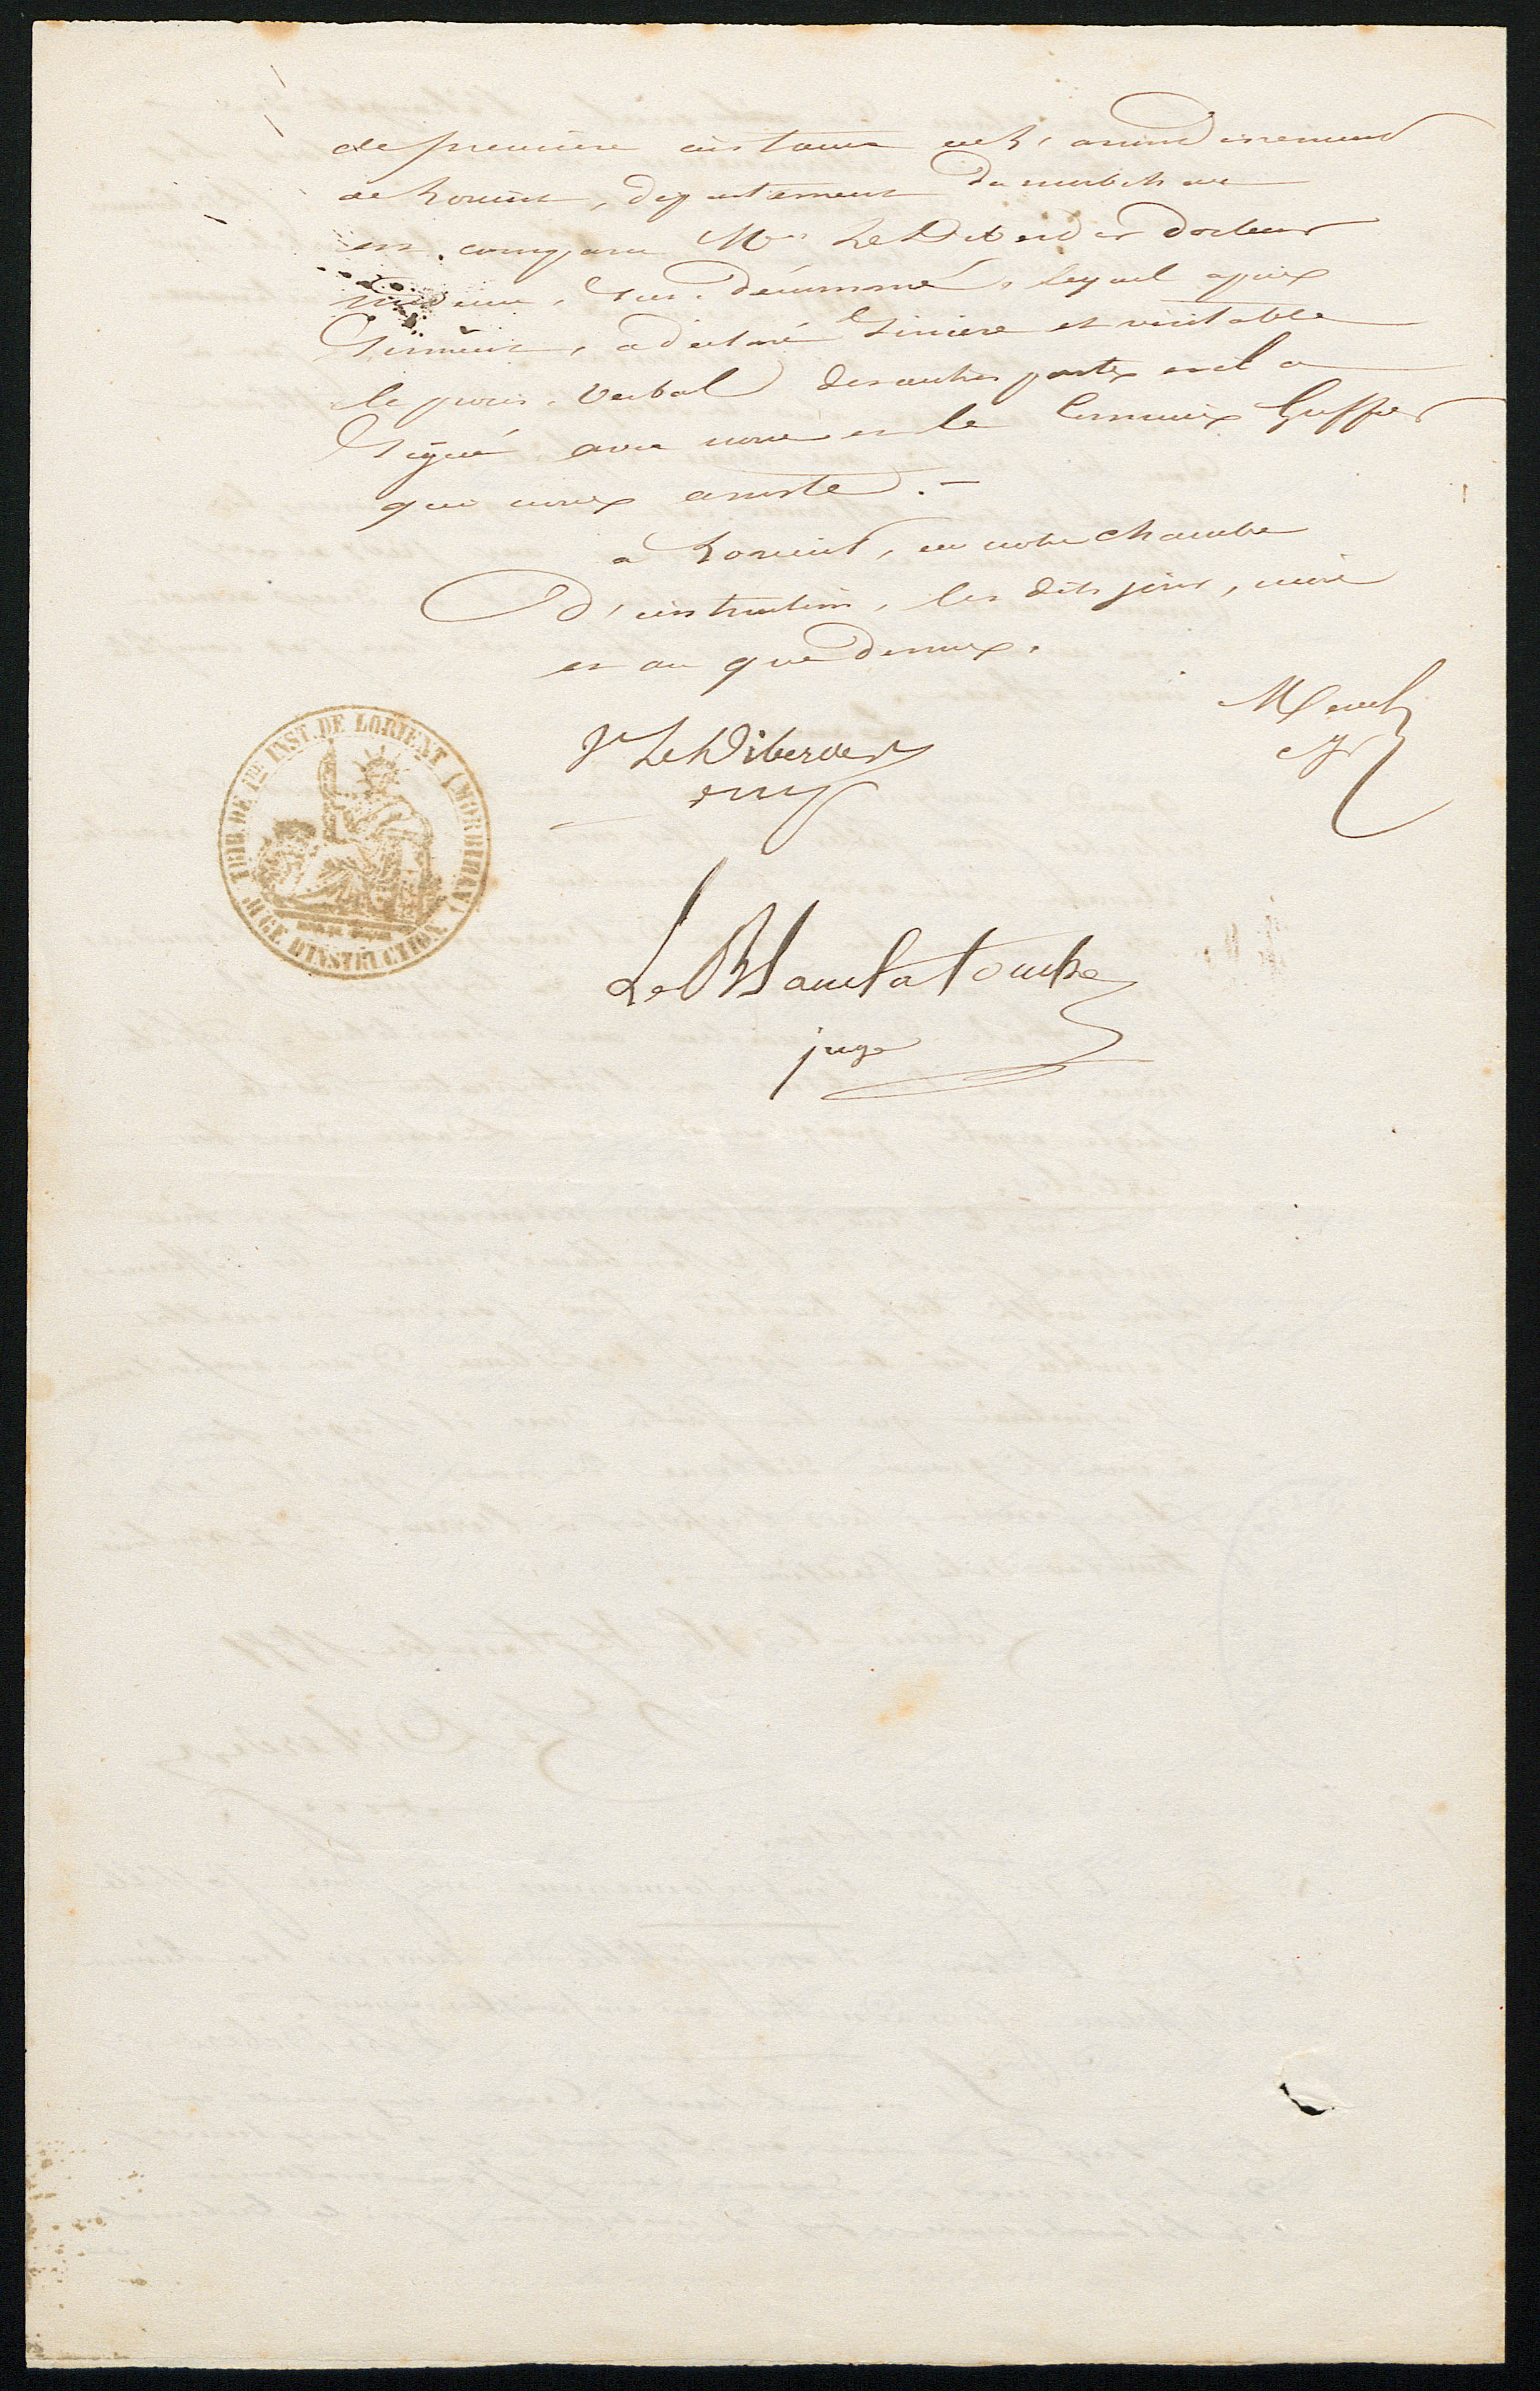 de première instance de l'arrondissement
de Lorient, département du morbihan
est comparu Mr Le Diberder docteur
médecin, sus-dénommé, lequel après
serment, a déclaré sincère et véritable
le procès-verbal des autres parts et il a
signé avec nous et le commis Greffier
qui nous assiste.-
à Lorient, en notre chambre
d'instruction, les dits jour, mois
et an que dessus.
Le Diberder
dmp
TRIB. DE 1RE INST. DE LORIENT (MORBIHAN)
JUGE D'INSTRUCTION
Le Blanc
juge